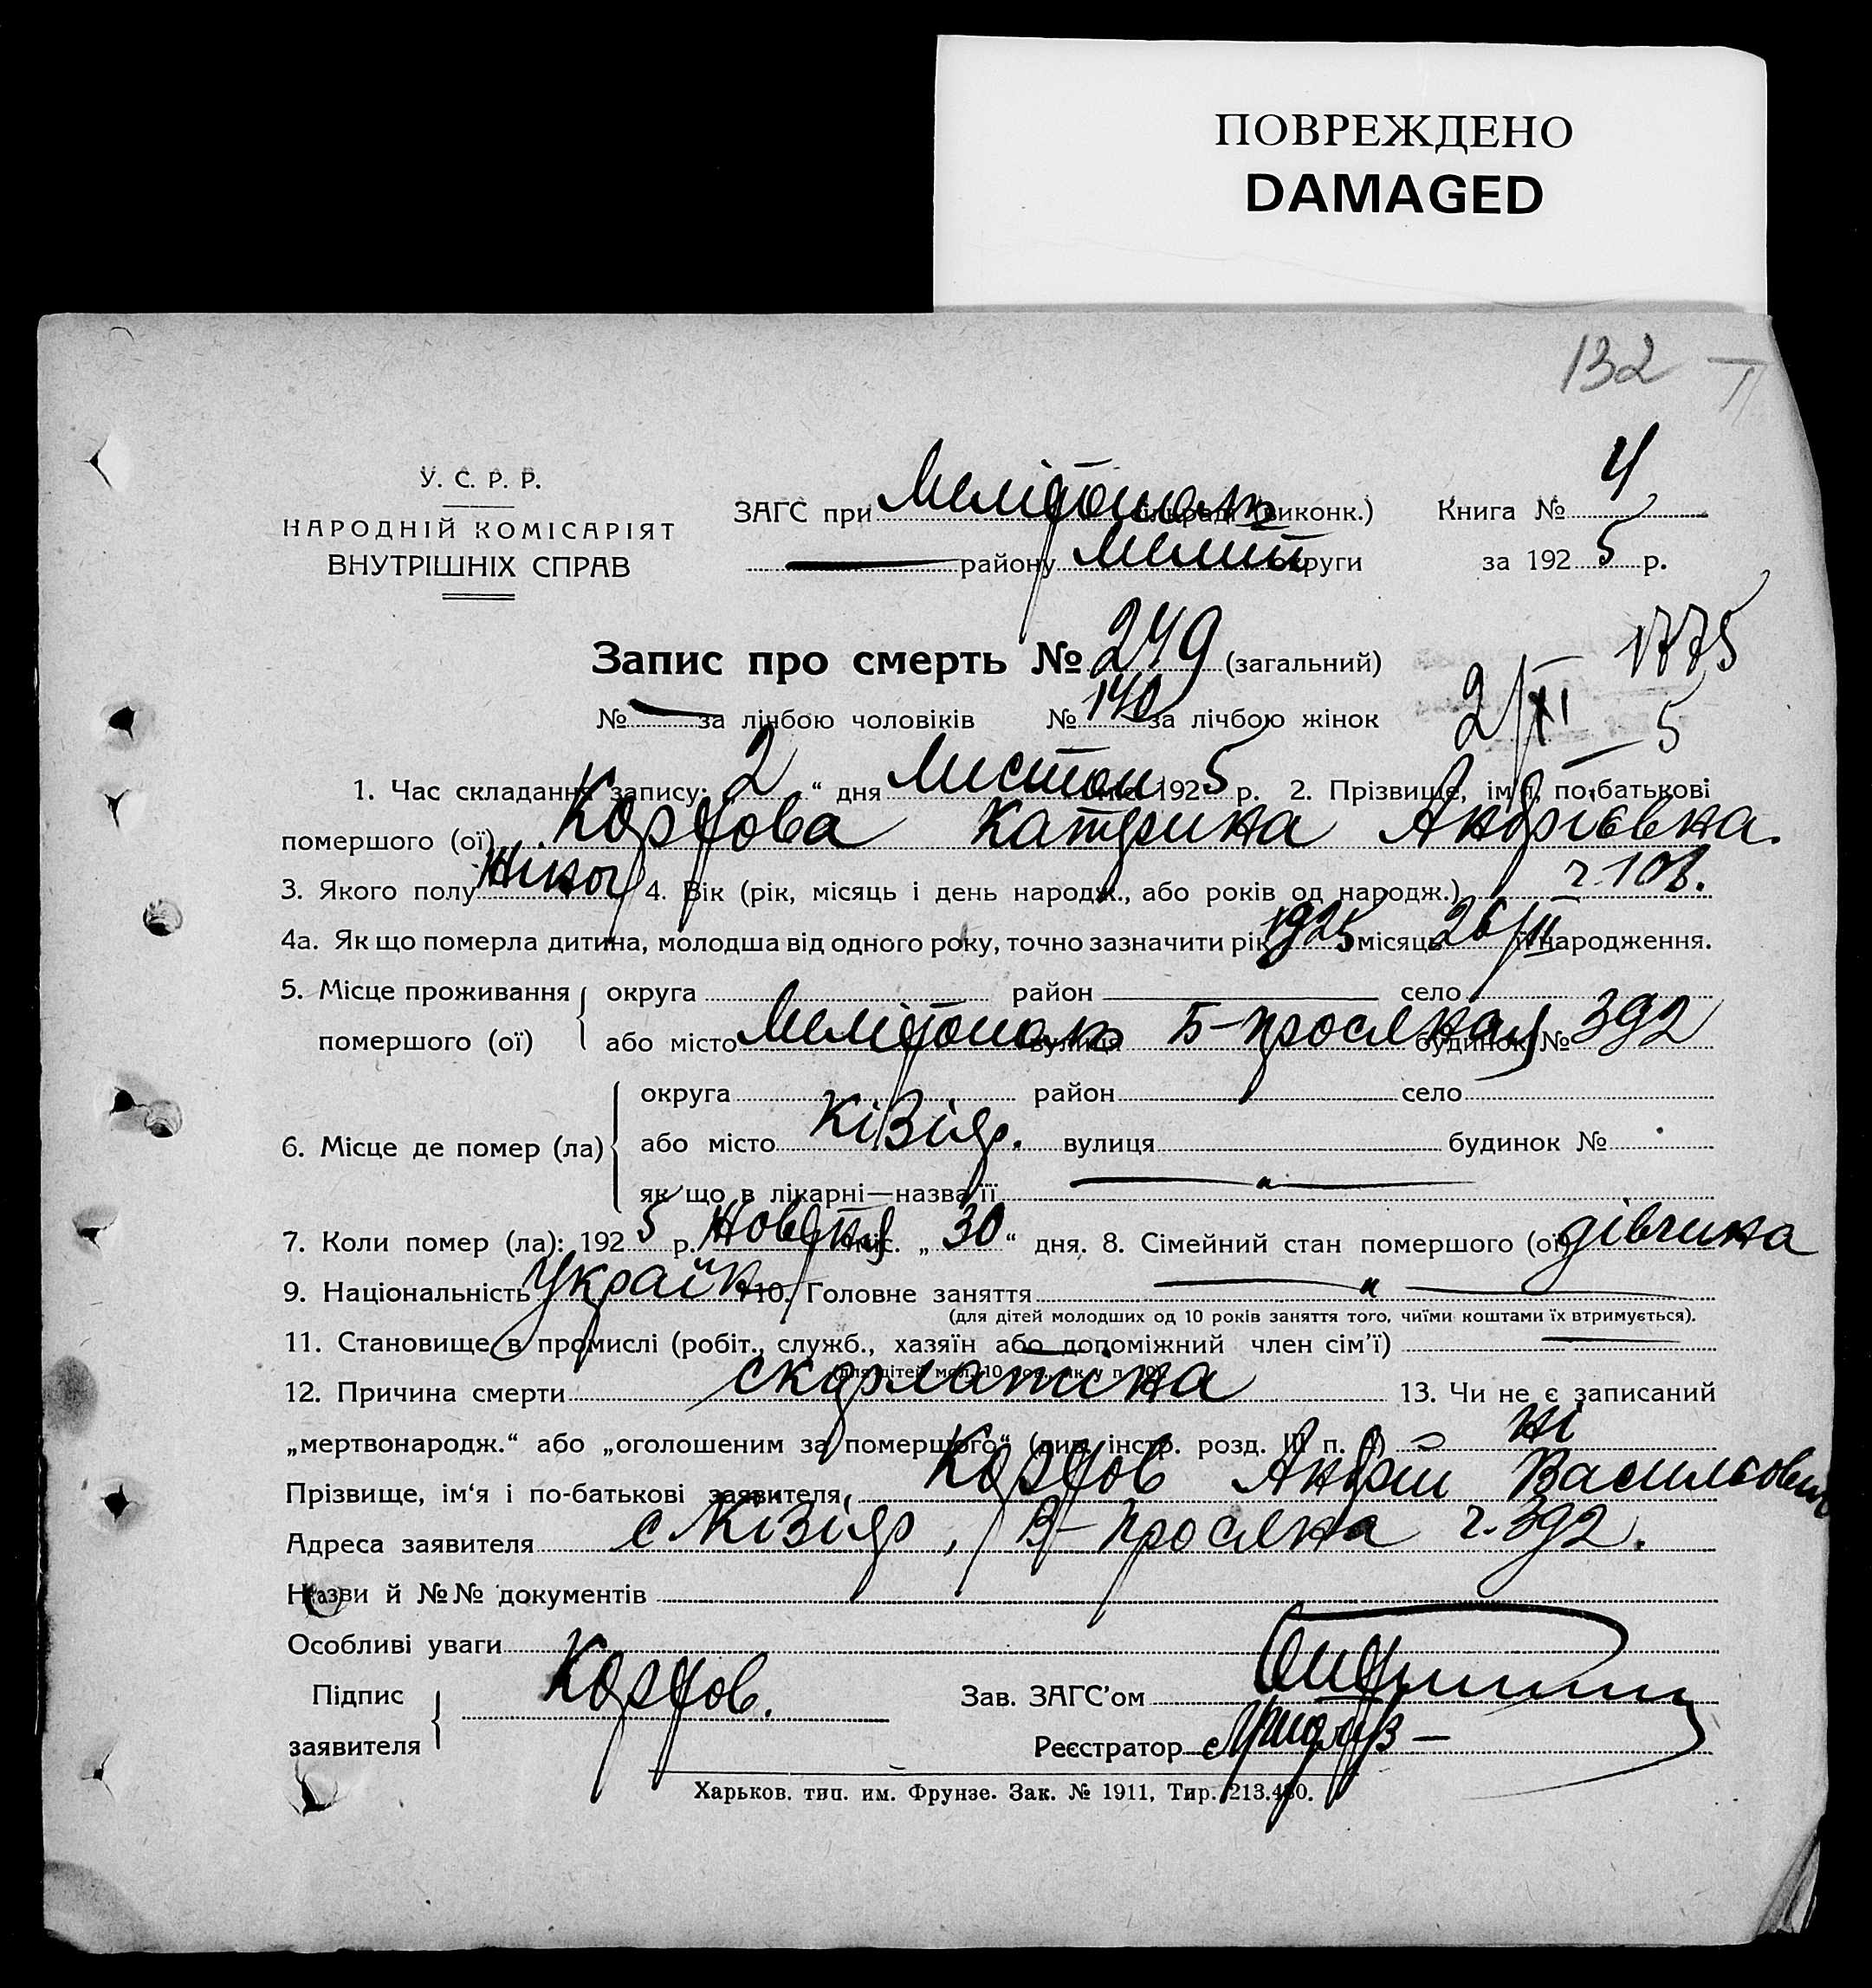 ПОВРЕЖДЕНО
DAMAGED
132
У. С. Р. Р.
НАРОДНІЙ КОМІСАРІЯТ
ВНУТРІШНІХ СПРАВ
ЗАГС при виконк.) Книга № 4
району округи за 1925 р.
1775
Запис про смерть № 249 (загальний)
№ за лічбою чоловіків № 140 за лічбою жінок 2/XI 5
1. Час складання запису: 2 “ дня Листоп 1925 р. 2. Прізвище, ім'я, по-батькові
помершого (ої) Катрина Андрієвка.
3. Якого полу 4. Вік (рік, місяць і день народж., або років од народж.)
4а. Як що померла дитина, молодша від одного року, точно зазначити рік 1925 місяць 26/II народження.
5. Місце проживання округа район село
помершого (ої) або місто вулиця будинок № 392
округа район село
6. Місце де помер (ла) або місто Кізіяр. вулиця будинок №
як що в лікарні—назва її
7. Коли помер (ла): 1925 р. міс. „ 30 “ дня. 8. Сімейний стан помершого (ої) дівчина
9. Національність Україн 10. Головне заняття
(для дітей молодших од 10 років заняття того, чиїми коштами їх втримується).
11. Становище в промислі (робіт., служб., хазяїн або допоміжний член сім'ї)
12. Причина смерти скарлатіна 13. Чи не є записаний
„мертвонародж.“ або „оголошеним за помершого“ інстр. розд. III п. ні
Прізвище, ім‘я і по-батькові заявителя Андрій
Адреса заявителя с Кізіяр, 392.
Назви й №№ документів
Особливі уваги
Підпис Зав. ЗАГС'ом
заявителя Реєстратор
Харьков. тип. им. Фрунзе. Зак. № 1911, Тир. 213.480.